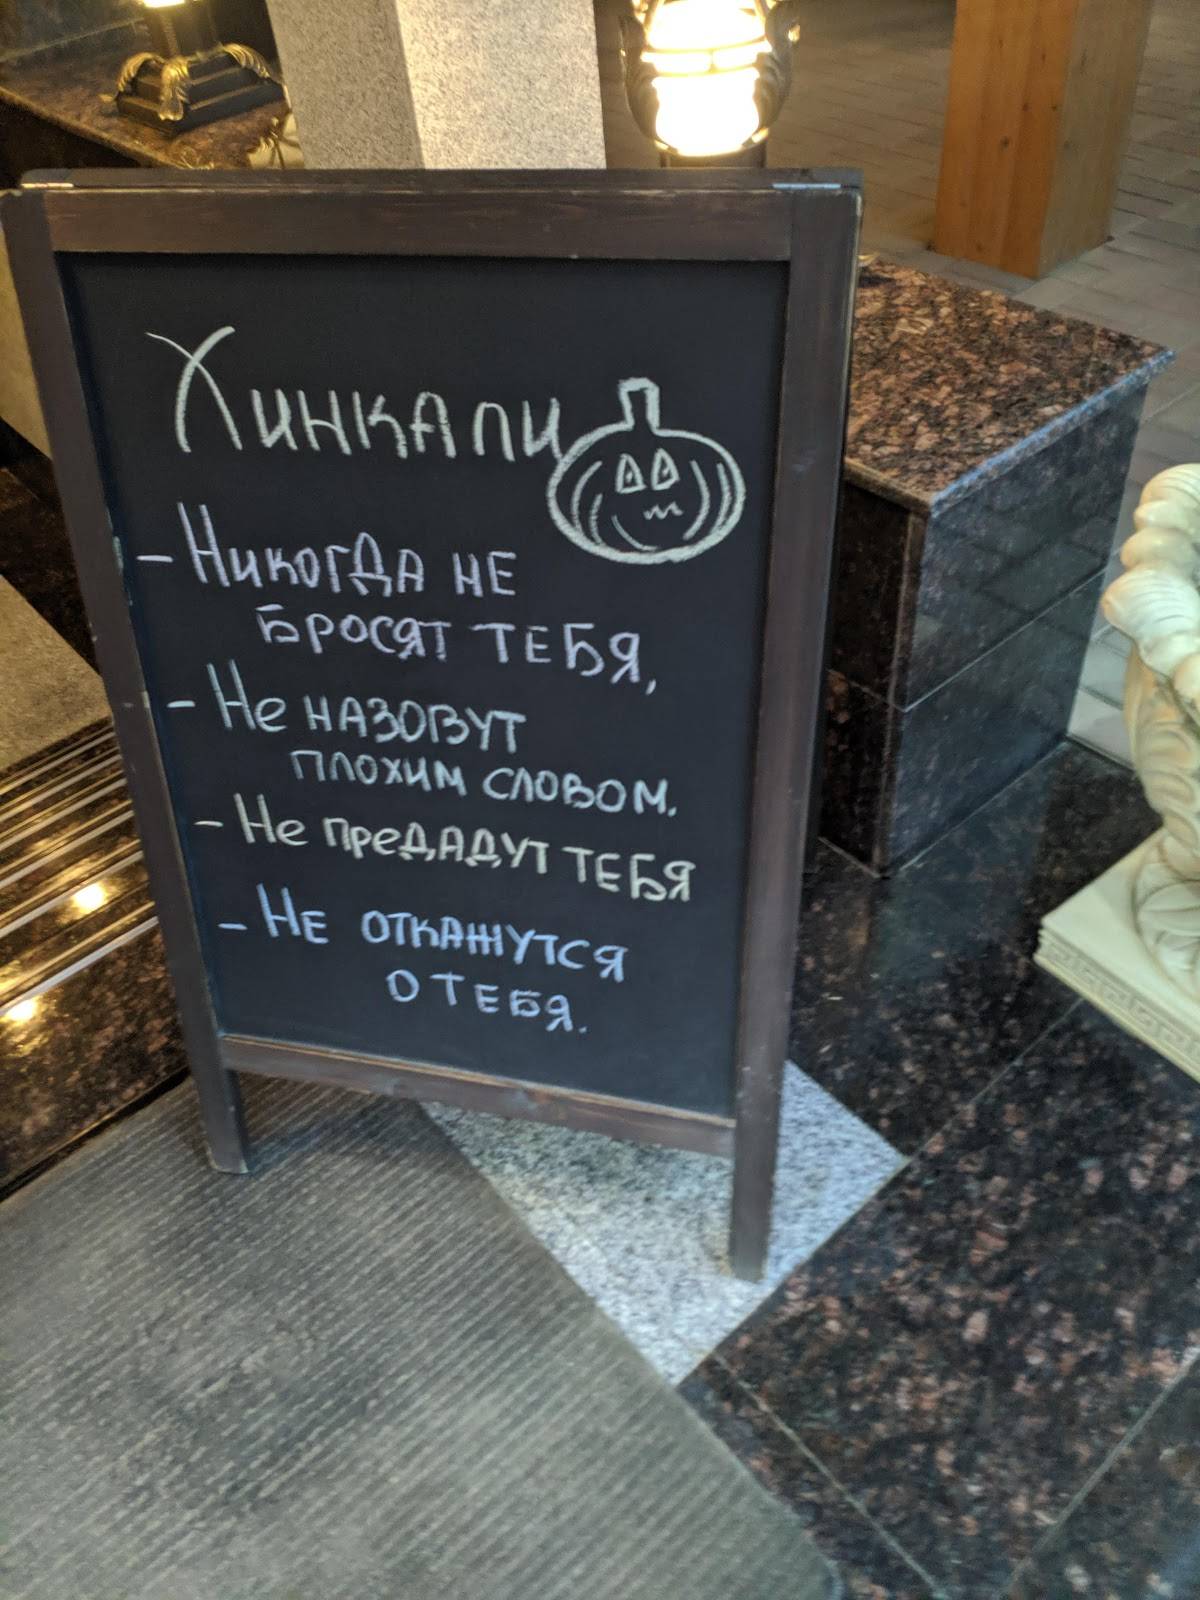 Хинкали
- Никогда не
бросят тебя,
- Не назовут
плохим словом.
- Не предадут тебя
- Не откажутся
о тебя.